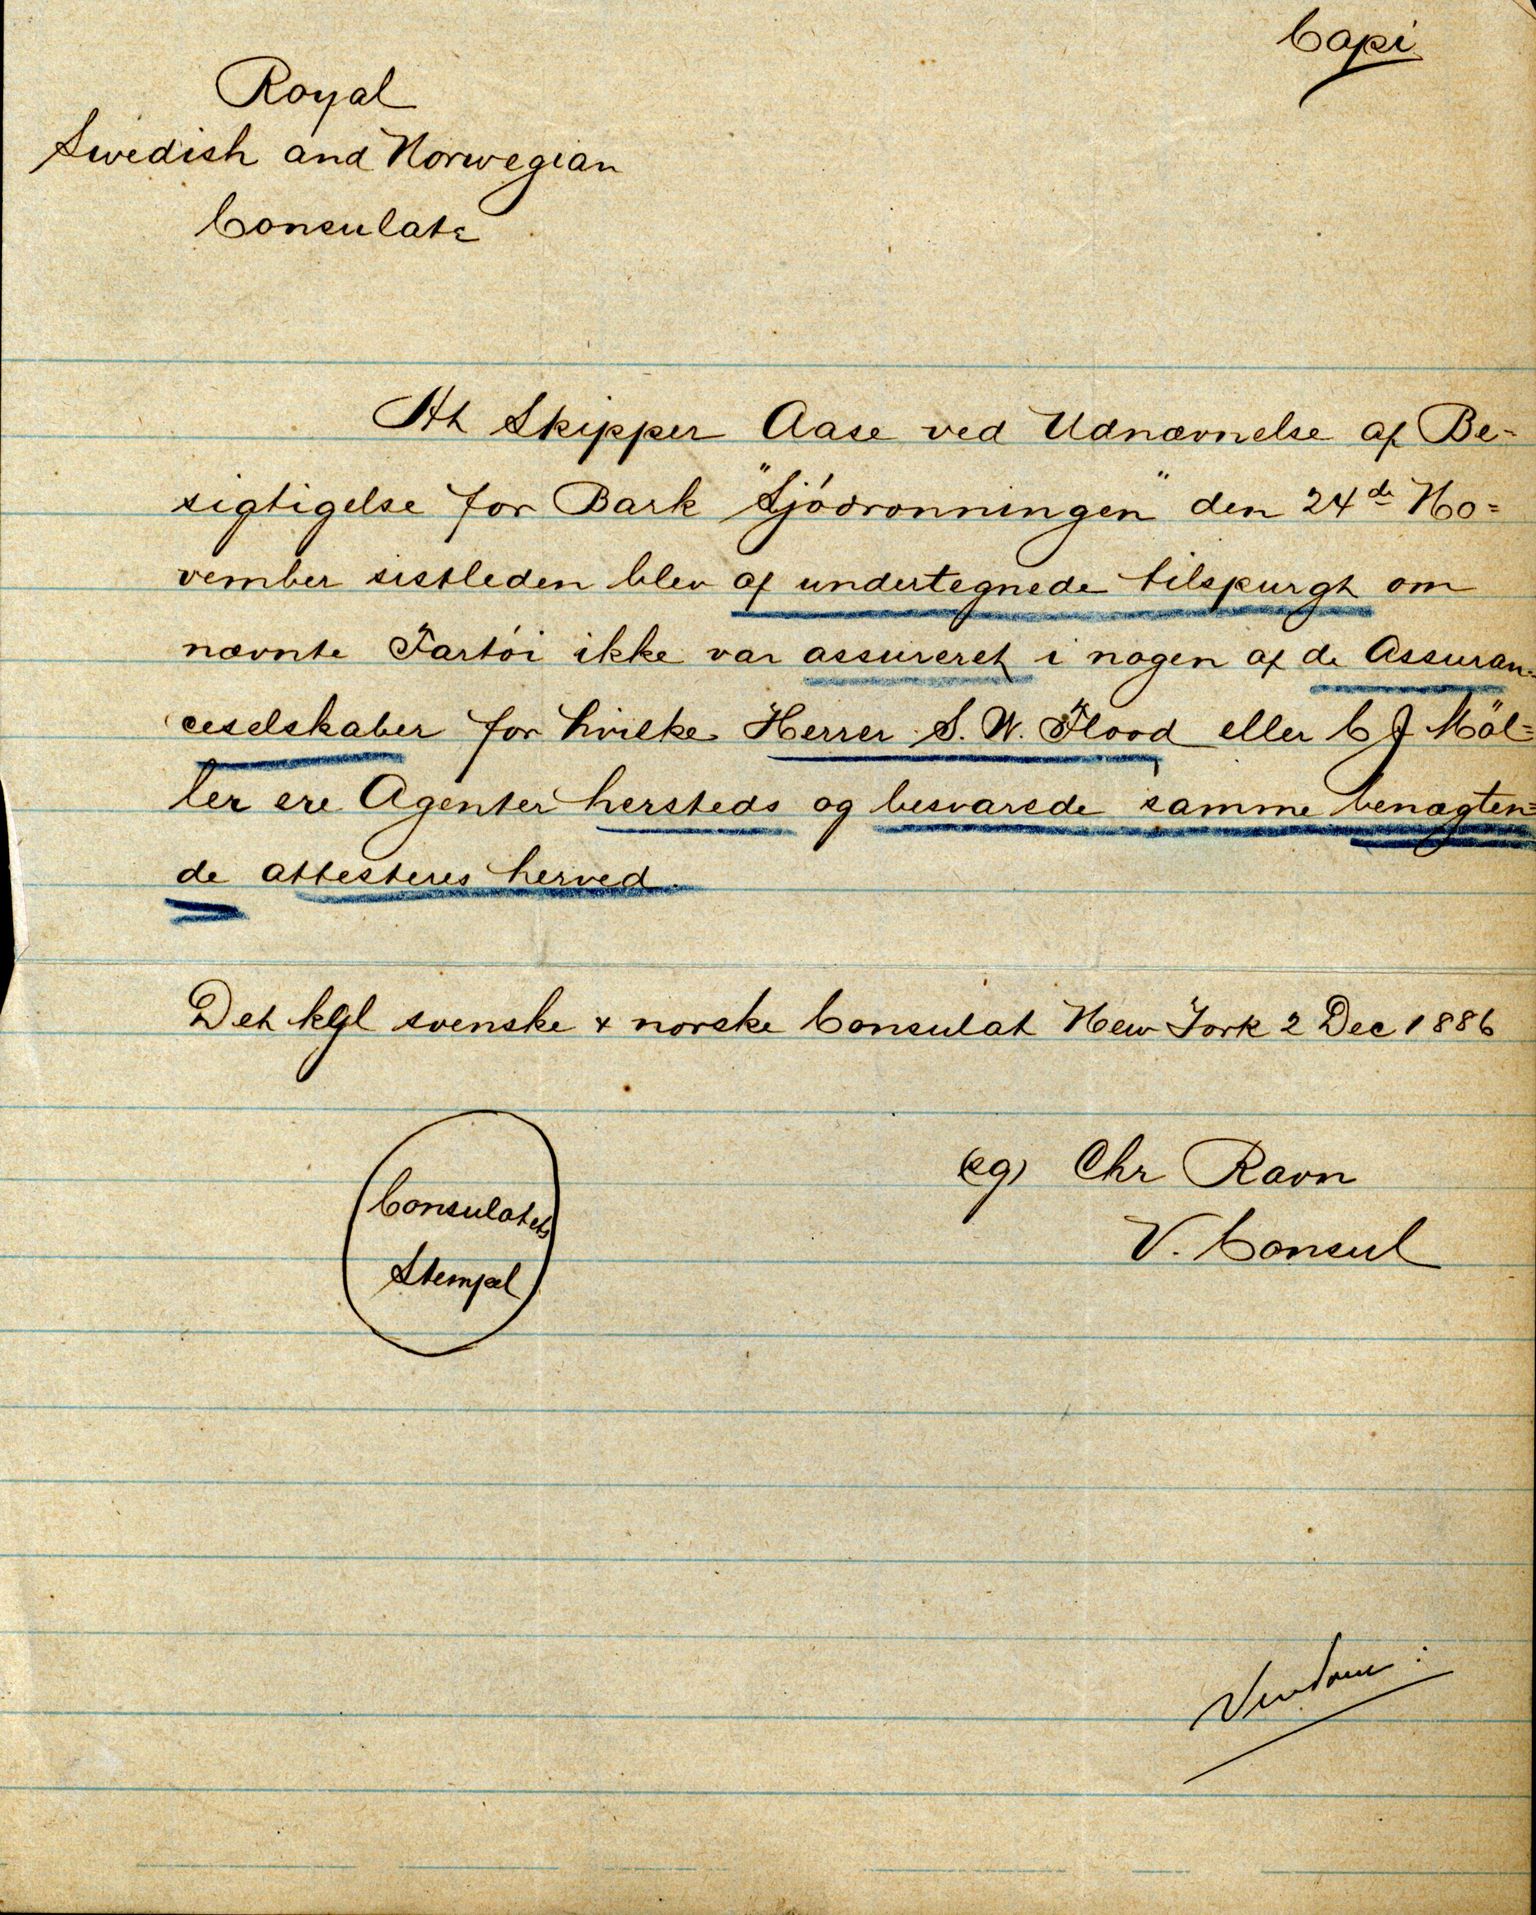 Copi
Royal
Swedish and Norwegian
Consulate
At Skipper Aase ved Udnævnelse af Be=
sigtigelse for Bark "Sjódronningen" den 24de No=
vember sistleden blev af undertegnede tilspurgt om
nævnte Fartói ikke var assureret i nogen af de Assuran=
ceselskaber for hvilke Herrer S. W. Flood eller C J Möl=
ler ere Agenter hersteds og besvarede samme benægten=
de attesteres herved.
Det kgl svenske & norske Consulat New York 2 Dec 1886
Consulatets
Stempel
(eg) Chr Ravn
V. Consul